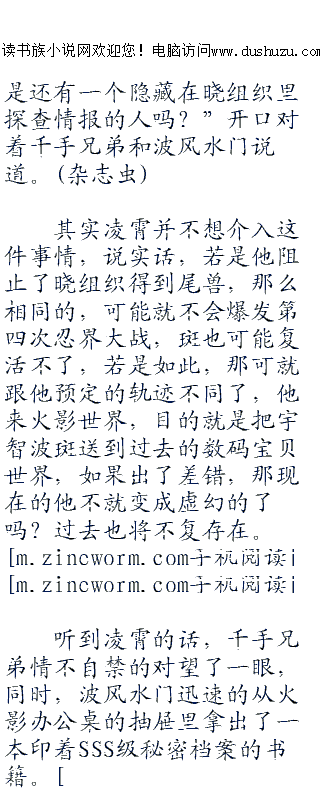 读书族小说网欢迎您！电脑访问www.dushuzu.com
是还有一个隐藏在晓组织里
探查情报的人吗？”开口对
着千手兄弟和波风水门说
道。(杂志虫)
其实凌霄并不想介入这
件事情，说实话，若是他阻
止了晓组织得到尾兽，那么
相同的，可能就不会爆发第
四次忍界大战，斑也可能复
活不了，若是如此，那可就
跟他预定的轨迹不同了，他
来火影世界，目的就是把宇
智波斑送到过去的数码宝贝
世界，如果出了差错，那现
在的他不就变成虚幻的了
吗？过去也将不复存在。
[m.zincworm.com手机阅读i
[m.zincworm.com手机阅读i
听到凌霄的话，千手兄
弟情不自禁的对望了一眼，
同时，波风水门迅速的从火
影办公桌的抽屉里拿出了一
本印着SSS级秘密档案的书
籍。[